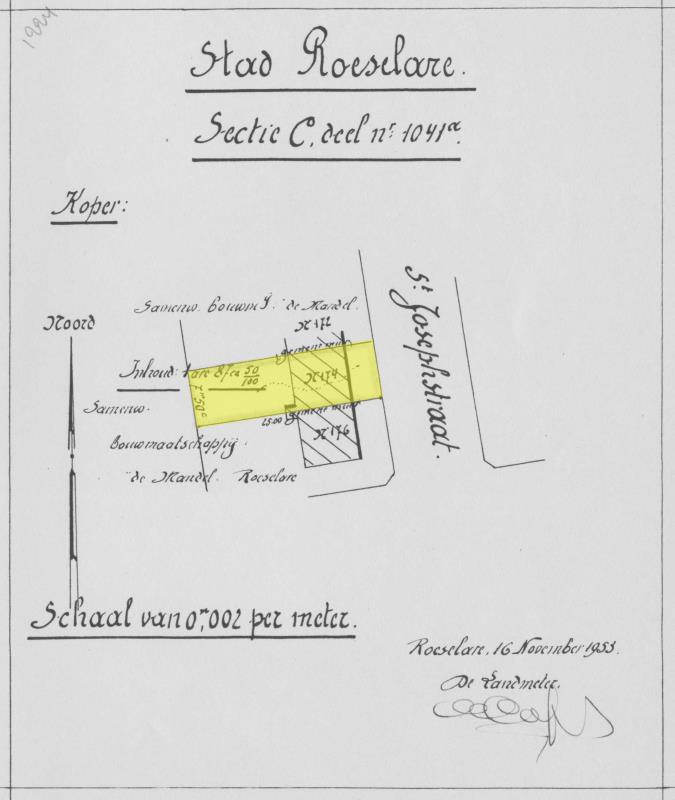 1994
Stad Roeselare.
Sectie C, deel nr 1041a.
Koper:
Noord
Samenw. bouwmij. "de Mandel.
N 172
gemene muur
Inhoud: 1 are 87 ca 50/100
N 174
7m50
25.00
gemene muur
N 176
Samenw.
bouwmaatschappij
"de Mandel. Roeselare
St Josephstraat.
Schaal van 0m,002 per meter.
Roeselare, 16 November 1953.
De Landmeter.